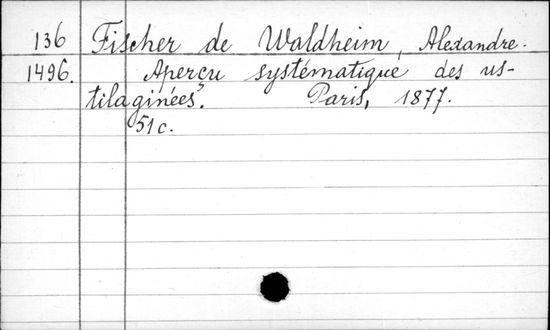 136 Fischer de Waldheim, Alexandre.
1496. Aperçu systématique des us-
tilaginées. Paris, 1877.
51 c.